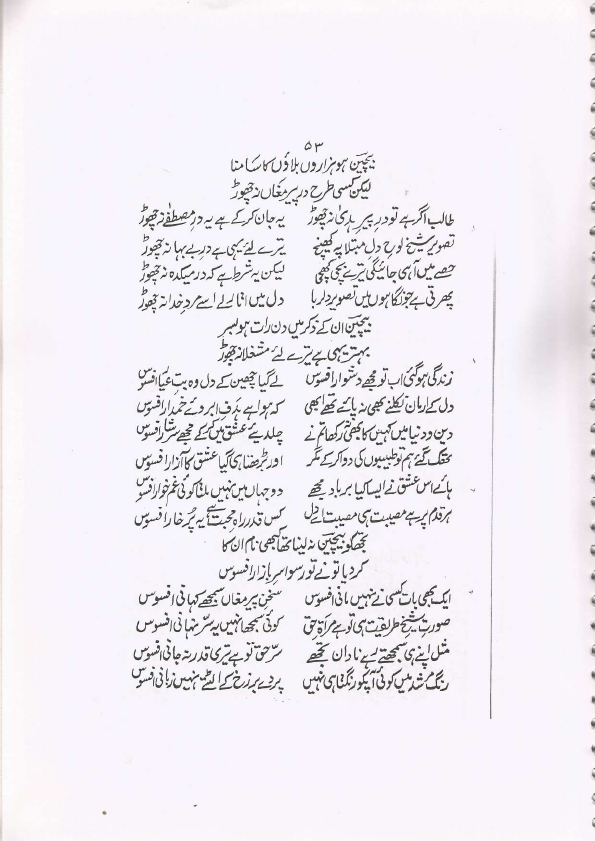 ۵۳
بیچین ہو ہزاروں بلاؤں کا سامنا
لیکن کسی طرح در پیر مغاں نہ چھوڑ
طالب اگر ہے تو در پیر ہدیٰ نہ چھوڑ یہ جان کر کے ہے یہ در مصطفےٰ نہ چھوڑ
تصویر شیخ لوح دل مبتلا پہ کھینچ تیرے لئے یہی ہے در بے بہا نہ چھوڑ
حصے میں آہی جائیگی تیرے بچی کھچی لیکن یہ شرط ہے کہ در میکدہ نہ چھوڑ
پھرتی ہے جو نگاہوں میں تصویر دلربا دل میں اتار لے اسے مرد خدا نہ چھوڑ
بیچین ان کے ذکر میں دن رات ہو بسر
بہتر یہی ہے تیرے لئے مشغلا نہ چھوڑ
زندگی ہو گئی اب تو مجھے دشوار افسوس لے گیا چھین کے دل وہ بت عیار افسوس
دل کے ارمان نکلنے بھی نہ پائے تھے ابھی کہ ہوا ہے ہدف ابروئے خمدار افسوس
دین و دنیا میں کہیں کا بھی نہ رکھا تم نے چلدیئے عشق میں کر کے مجھے سرشار افسوس
تھک گئے ہم تو طبیبوں کی دوا کر کے مگر اور بڑھتا ہی گیا عشق کا آزار افسوس
ہائے اس عشق نے ایسا کیا برباد مجھے دو جہاں میں نہیں ملتا کوئی غم خوار افسوس
ہر قدم پر ہے مصیبت ہی مصیبت اے دل کس قدر راہ محبت ہے یہ پُر خار افسوس
تجھ کو بیچین نہ لینا تھا کبھی نام ان کا
کر دیا تو نے تو رسوا سر بازار افسوس
ایک بھی بات کسی نے نہیں مانی افسوس سخن پیر مغاں سمجھے کہانی افسوس
صورت شیخ طریقت ہی تو ہے مرآۃ حق کوئی سمجھا نہیں یہ سرّ نہانی افسوس
مثل اپنے ہی سمجھتے رہے نادان تجھے سرّ حق تو ہے تری قدر نہ جانی افسوس
رنگ مرشد میں کوئی آپکو رنگتا ہی نہیں پردے برزخ کے الٹے نہیں زبانی افسوس